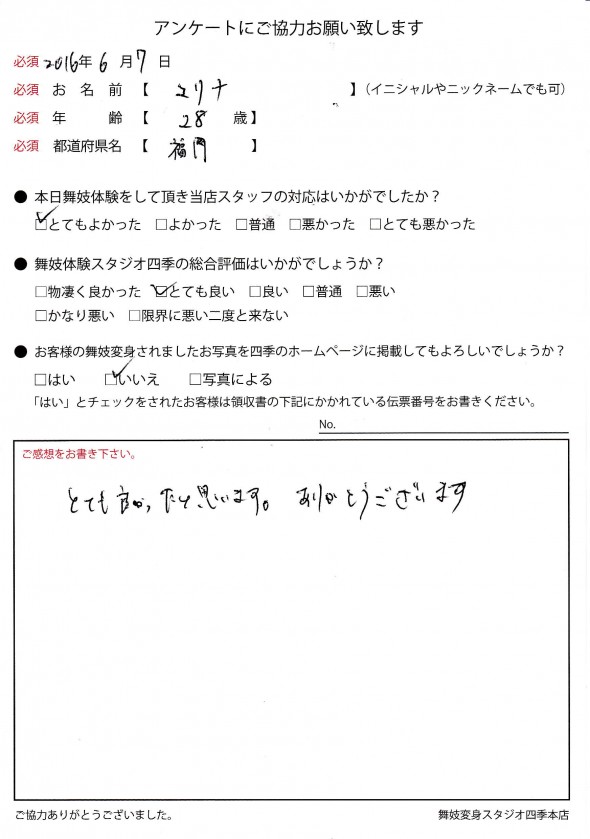 アンケートにご協力お願い致します
必須 2016年 6 月 7 日
必須 お 名 前 【 ユリナ 】(イニシャルやニックネームでも可)
必須 年 齢 【 28 歳】
必須 都道府県名 【 福岡 】
● 本日舞妓体験をして頂き当店スタッフの対応はいかがでしたか?
☑とてもよかった □よかった □普通 □悪かった □とても悪かった
● 舞妓体験スタジオ四季の総合評価はいかがでしょうか?
□物凄く良かった ☑とても良い □良い □普通 □悪い
□かなり悪い □限界に悪い二度と来ない
● お客様の舞妓変身されましたお写真を四季のホームページに掲載してもよろしいでしょうか?
□はい ☑いいえ □写真による
「はい」とチェックをされたお客様は領収書の下記にかかれている伝票番号をお書きください。
No.
ご感想をお書き下さい。
とても良かったと思います。 ありがとうございます
ご協力ありがとうございました。 舞妓変身スタジオ四季本店